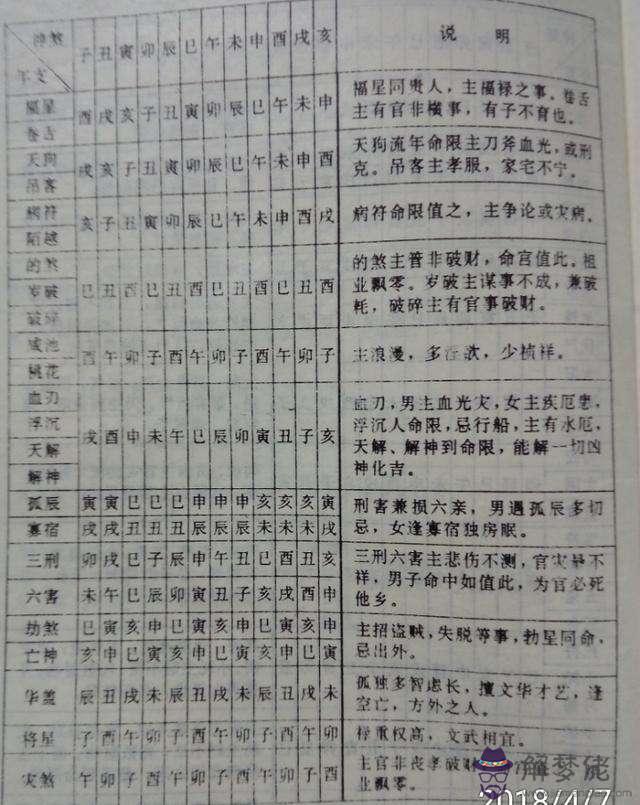 神煞 子 丑 寅 卯 辰 巳 午 未 申 酉 戌 亥 说 明
年支
福星 酉 戌 亥 子 丑 寅 卯 辰 巳 午 未 申 福星同贵人，主福禄之事。卷舌
卷舌 主有官非横事，有子不育也。
天狗 戌 亥 子 丑 寅 卯 辰 巳 午 未 申 酉 天狗流年命限主刀斧血光，或刑
吊客 克。吊客主孝服，家宅不宁。
病符 亥 子 丑 寅 卯 辰 巳 午 未 申 酉 戌 病符命限值之，主争论或灾病。
陌越
的煞 巳 丑 酉 巳 丑 酉 巳 丑 酉 巳 丑 酉 的煞主管非破财，命宫值此。祖
岁破 业飘零。岁破主谋事不成，兼破
破碎 耗，破碎主有官事破财。
咸池 酉 午 卯 子 酉 午 卯 子 酉 午 卯 子 主浪漫，多淫欲，少祯祥。
桃花
血刃 戌 酉 申 未 午 巳 辰 卯 寅 丑 子 亥 血刃，男主血光灾，女主疾厄悲，
浮沉 浮沉人命限，忌行船，主有水厄，
天解 天解、解神到命限，能解一切凶
解神 神化吉。
孤辰 寅 寅 巳 巳 巳 申 申 申 亥 亥 亥 寅 刑害兼损六亲，男遇孤辰多切
寡宿 戌 戌 丑 丑 丑 辰 辰 辰 未 未 未 戌 忌，女逢寡宿独房眠。
三刑 卯 戌 巳 子 辰 申 午 丑 巳 酉 丑 亥 三刑六害主悲伤不测，官灾暴不
六害 未 午 巳 辰 卯 寅 丑 子 亥 戌 酉 申 祥，男子命中如值此，为官必死
他乡。
劫煞 巳 寅 亥 申 巳 寅 亥 申 巳 寅 亥 申 主招盗贼，失脱等事，勃星同命，
亡神 亥 申 巳 寅 亥 申 巳 寅 亥 申 巳 寅 忌出外。
华盖 辰 丑 戌 未 辰 丑 戌 未 辰 丑 戌 未 孤独多智虑长，擅文华才艺，逢
空亡，方外之人。
将星 子 酉 午 卯 子 酉 午 卯 子 酉 午 卯 禄重权高，文武相宜。
灾煞 午 卯 子 酉 午 卯 子 酉 午 卯 子 酉 主官非丧孝破财
业飘零。
解梦佬
2018/1/7